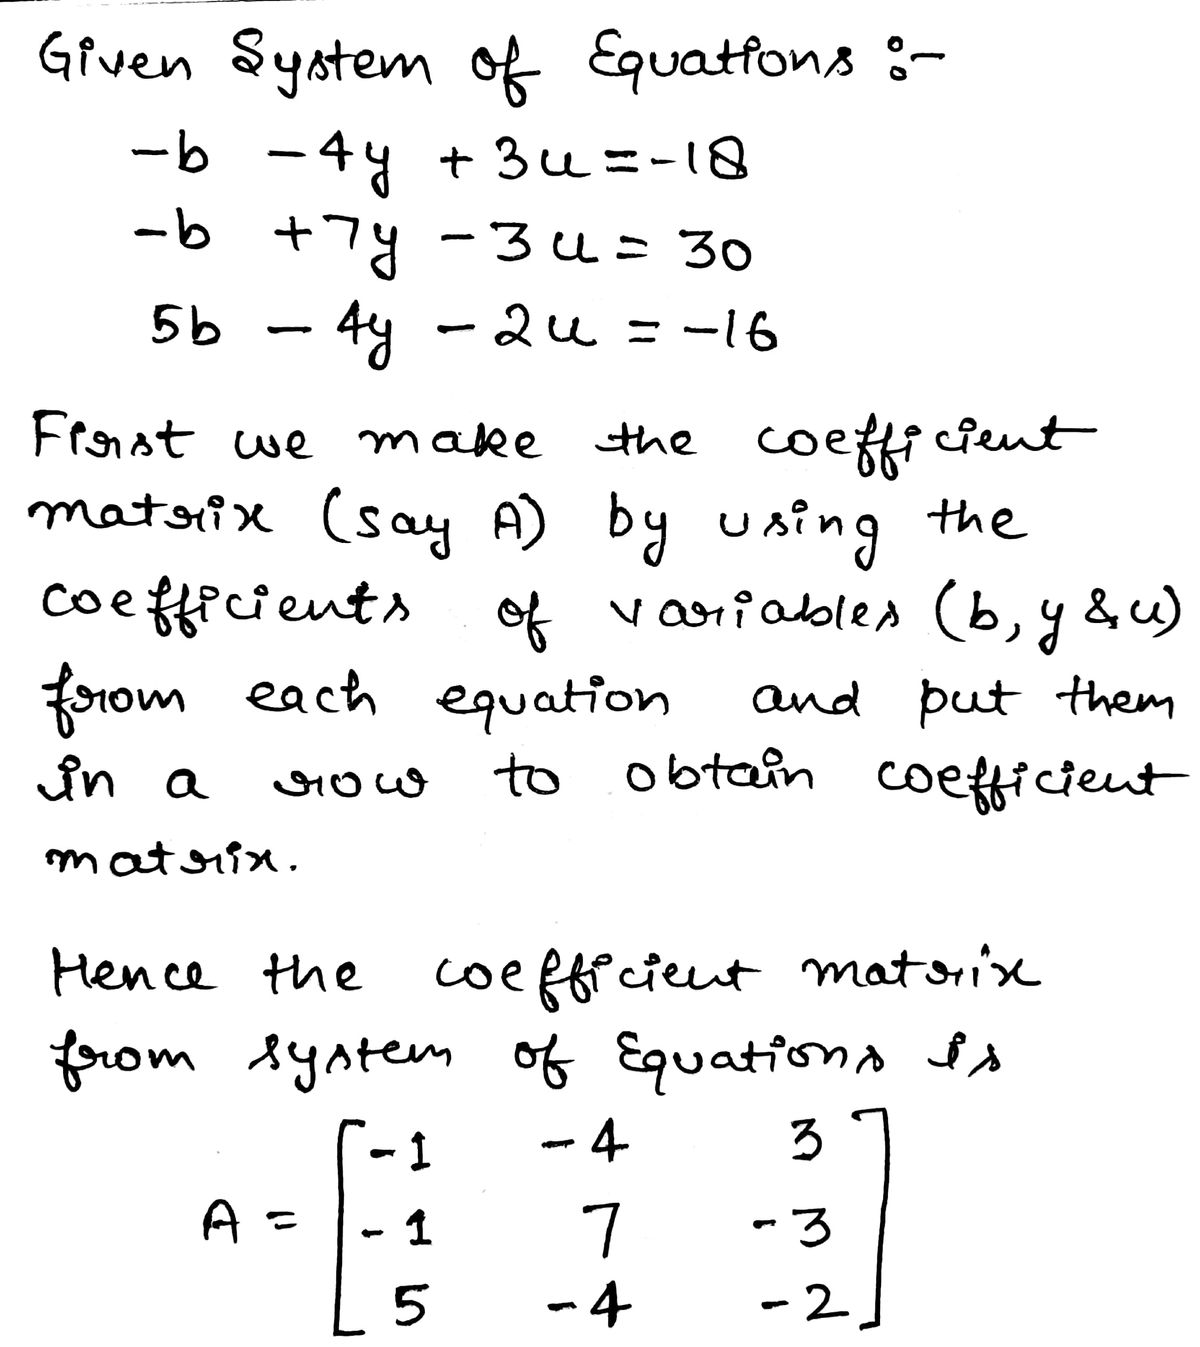 Given System of Equations :-
-b -4y +3u=-18
-b +7y -3u= 30
5b - 4y -2u = -16
First we make the coefficient
matrix (say A) by using the
coefficients of variables (b, y & u)
from each equation and put them
in a row to obtain coefficient
matrix.
Hence the coefficient matrix
from system of Equations is
-1 -4 3
A = -1 7 -3
5 -4 -2